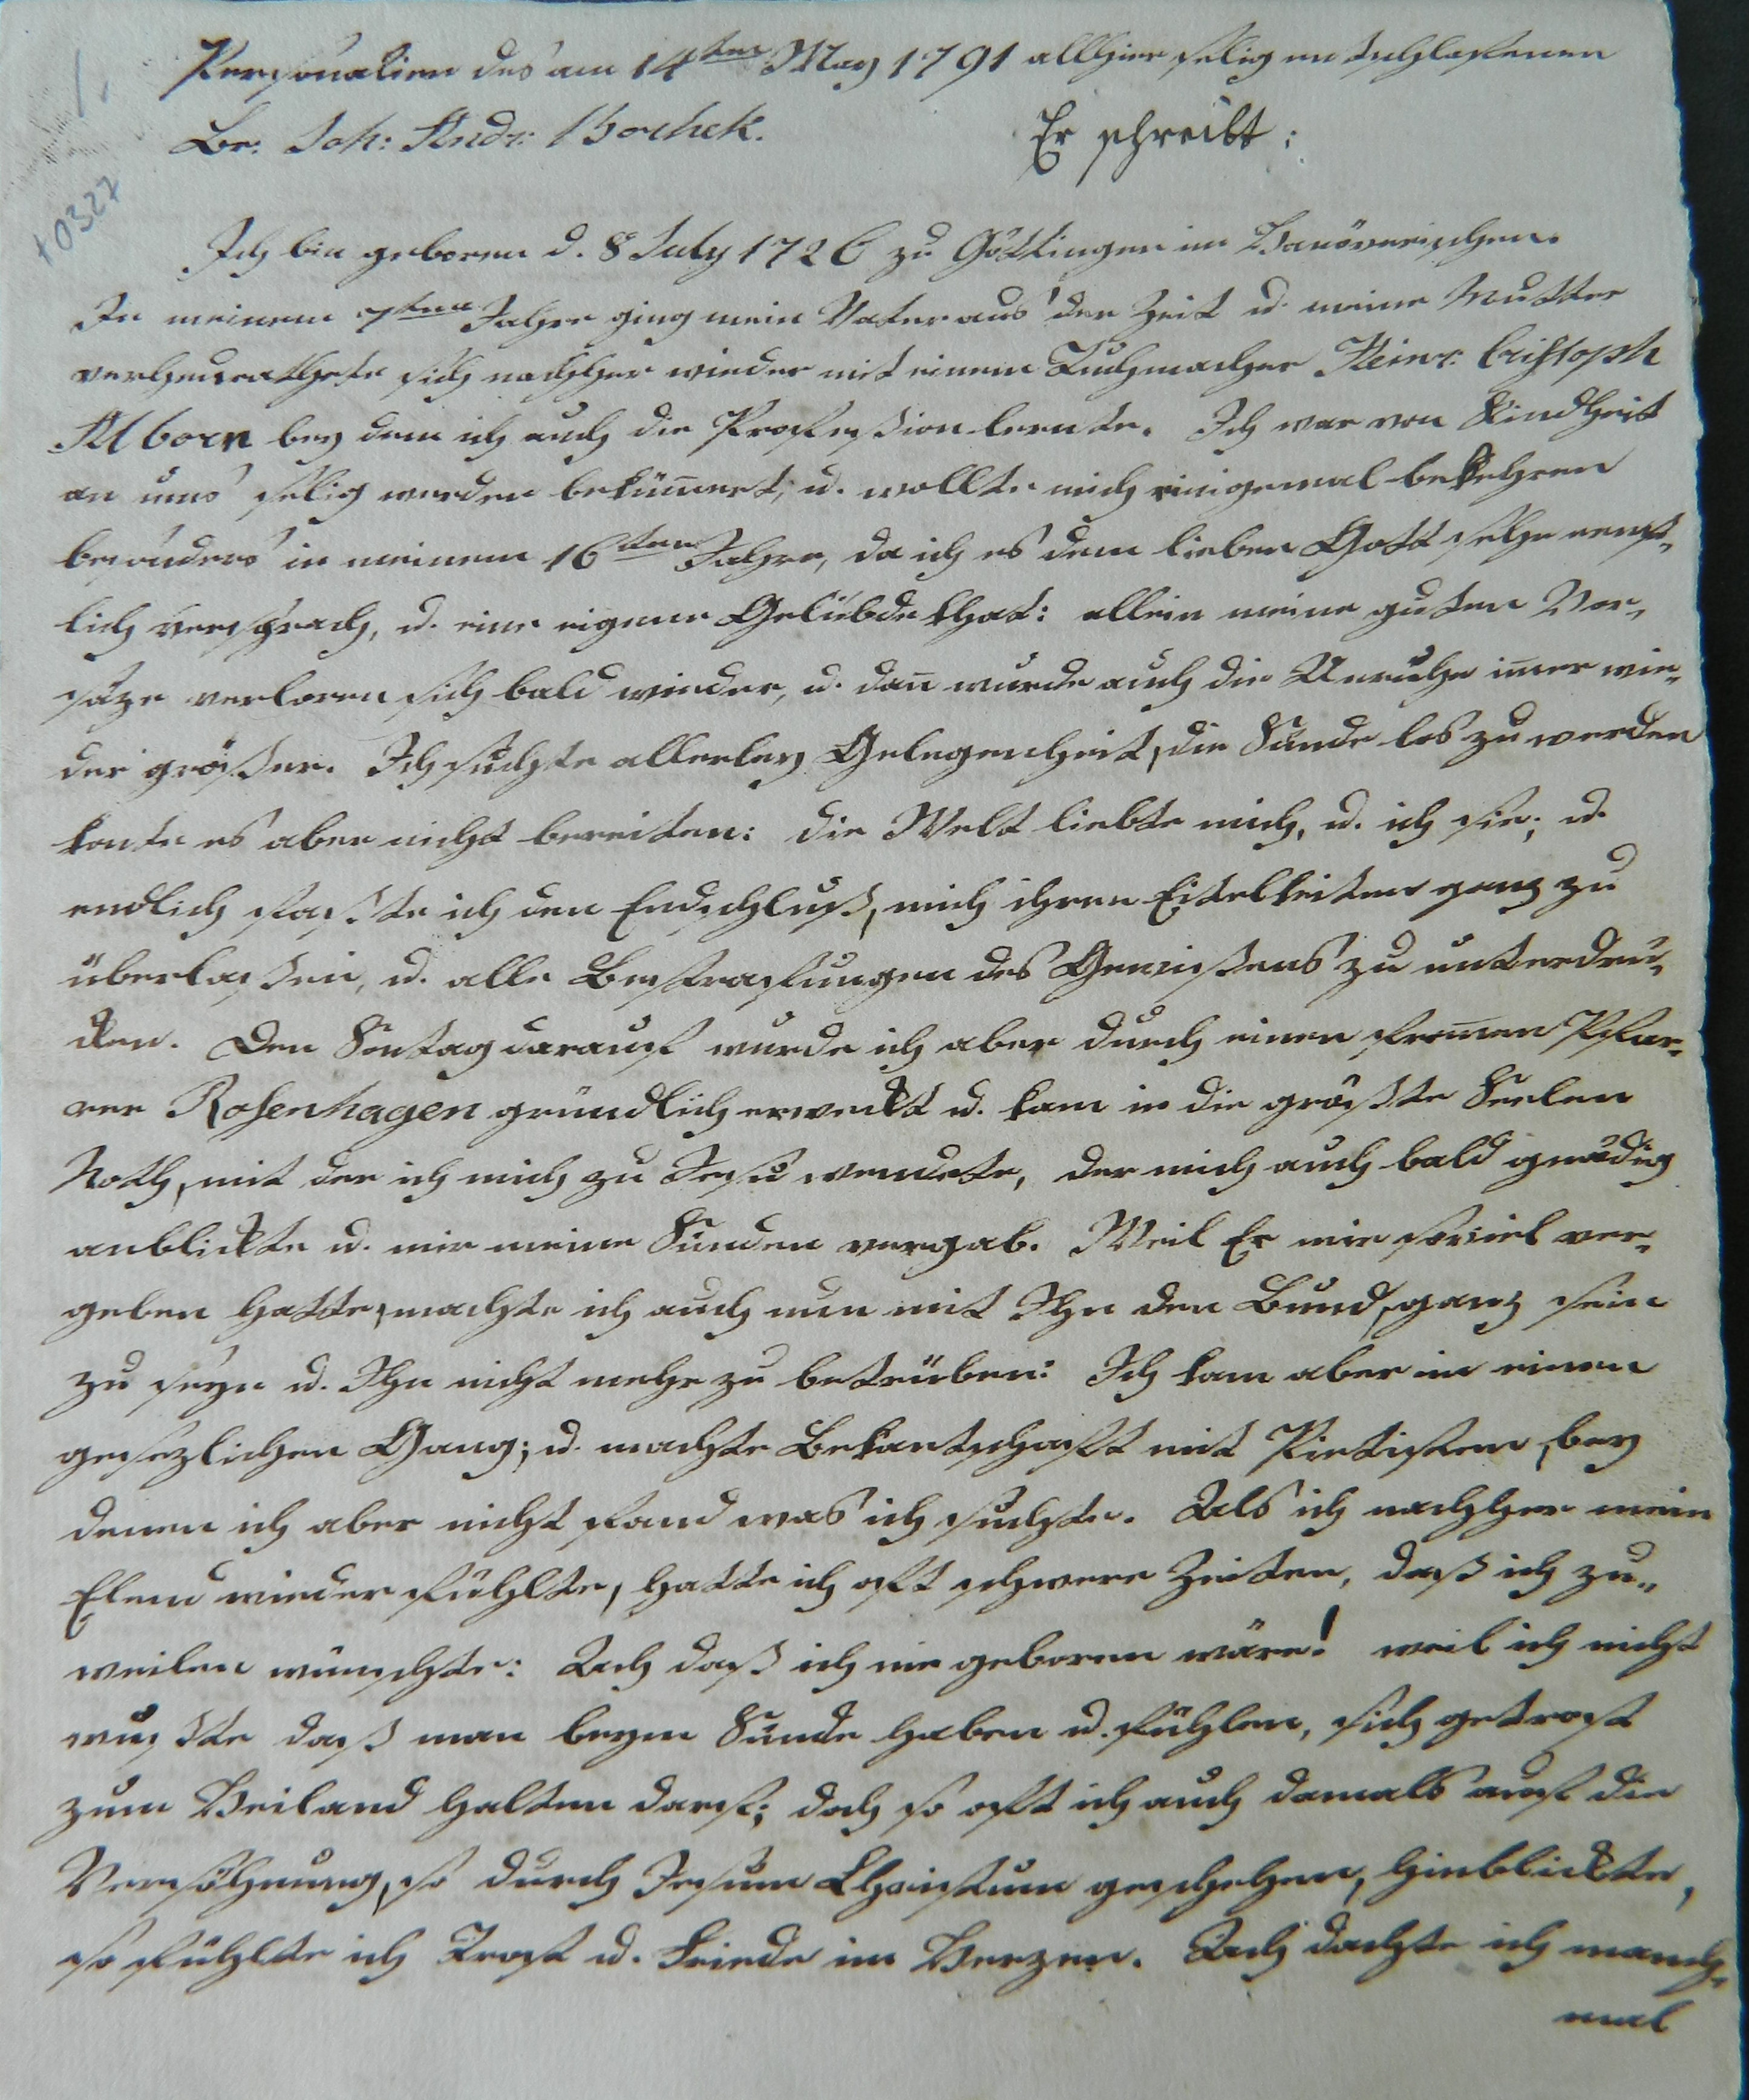 1.
10327
Personalien des am 14ten May 1791 allhier selig entschlafenen
Br. Joh: Andr: Borchek. Er schreibt:
Ich bin geboren d. 8 July 1726 zu Göttingen im Hanöverischen.
In meinem 7ten Jahre ging mein Vater aus der Zeit u. meine Mutter
verheurathete sich nachher wieder mit einem Tuchmacher Heinr: Cristoph
Alborn bey dem ich auch die Profeßion lernte. Ich war von Kindheit
an ums selig werden bekümert, u. wollte mich einigemal bekehren
besonders in meinem 16ten Jahre, da ich es dem lieben Gott sehr ernst-
lich versprach, u. eine eigene Gelübde that: allein meine guten Vor-
säze verloren sich bald wieder, u. dan wurde auch die Unruhe imer wie-
der größer. Ich suchte allerley Gelegenheit, die Sünde los zu werden
konte es aber nicht bereiten: die Welt liebte mich, u. ich sie; u.
endlich faßte ich den Endschluß, mich ihren Eitelkeiten ganz zu
überlaßen, u. alle Bestrafungen des Gewißens zu unterdrü-
cken. Den Sontag darauf wurde ich aber durch einen fromen Pfar-
rer Rosenhagen gründlich erweckt u. kam in die größte Seelen
Noth, mit der ich mich zu Jesu wendete, der mich auch bald gnädig
anblickte u. mir meine Sünden vergab. Weil Er mir soviel ver-
geben hatte, machte ich auch nun mit Ihm den Bund, ganz sein
zu seyn u. Ihn nicht mehr zu betrüben: Ich kam aber in einen
gesezlichen Gang; u. machte Bekantschaft mit Pietisten, bey
denen ich aber nicht fand was ich suchte. Als ich nachher mein
Elend wieder fühlte, hatte ich oft schwere Zeiten, daß ich zu-
weilen wünschte: Ach daß ich nie geboren wäre! weil ich nicht
wußte daß man beym Sünde haben u. fühlen, sich getrost
zum Heiland halten darf; doch so oft ich auch damals auf die
Versöhnung, so durch Jesum Christum geschehen, hinblickte,
so fühlte ich Trost u. Friede im Herzen. Ach dachte ich manch-
mal